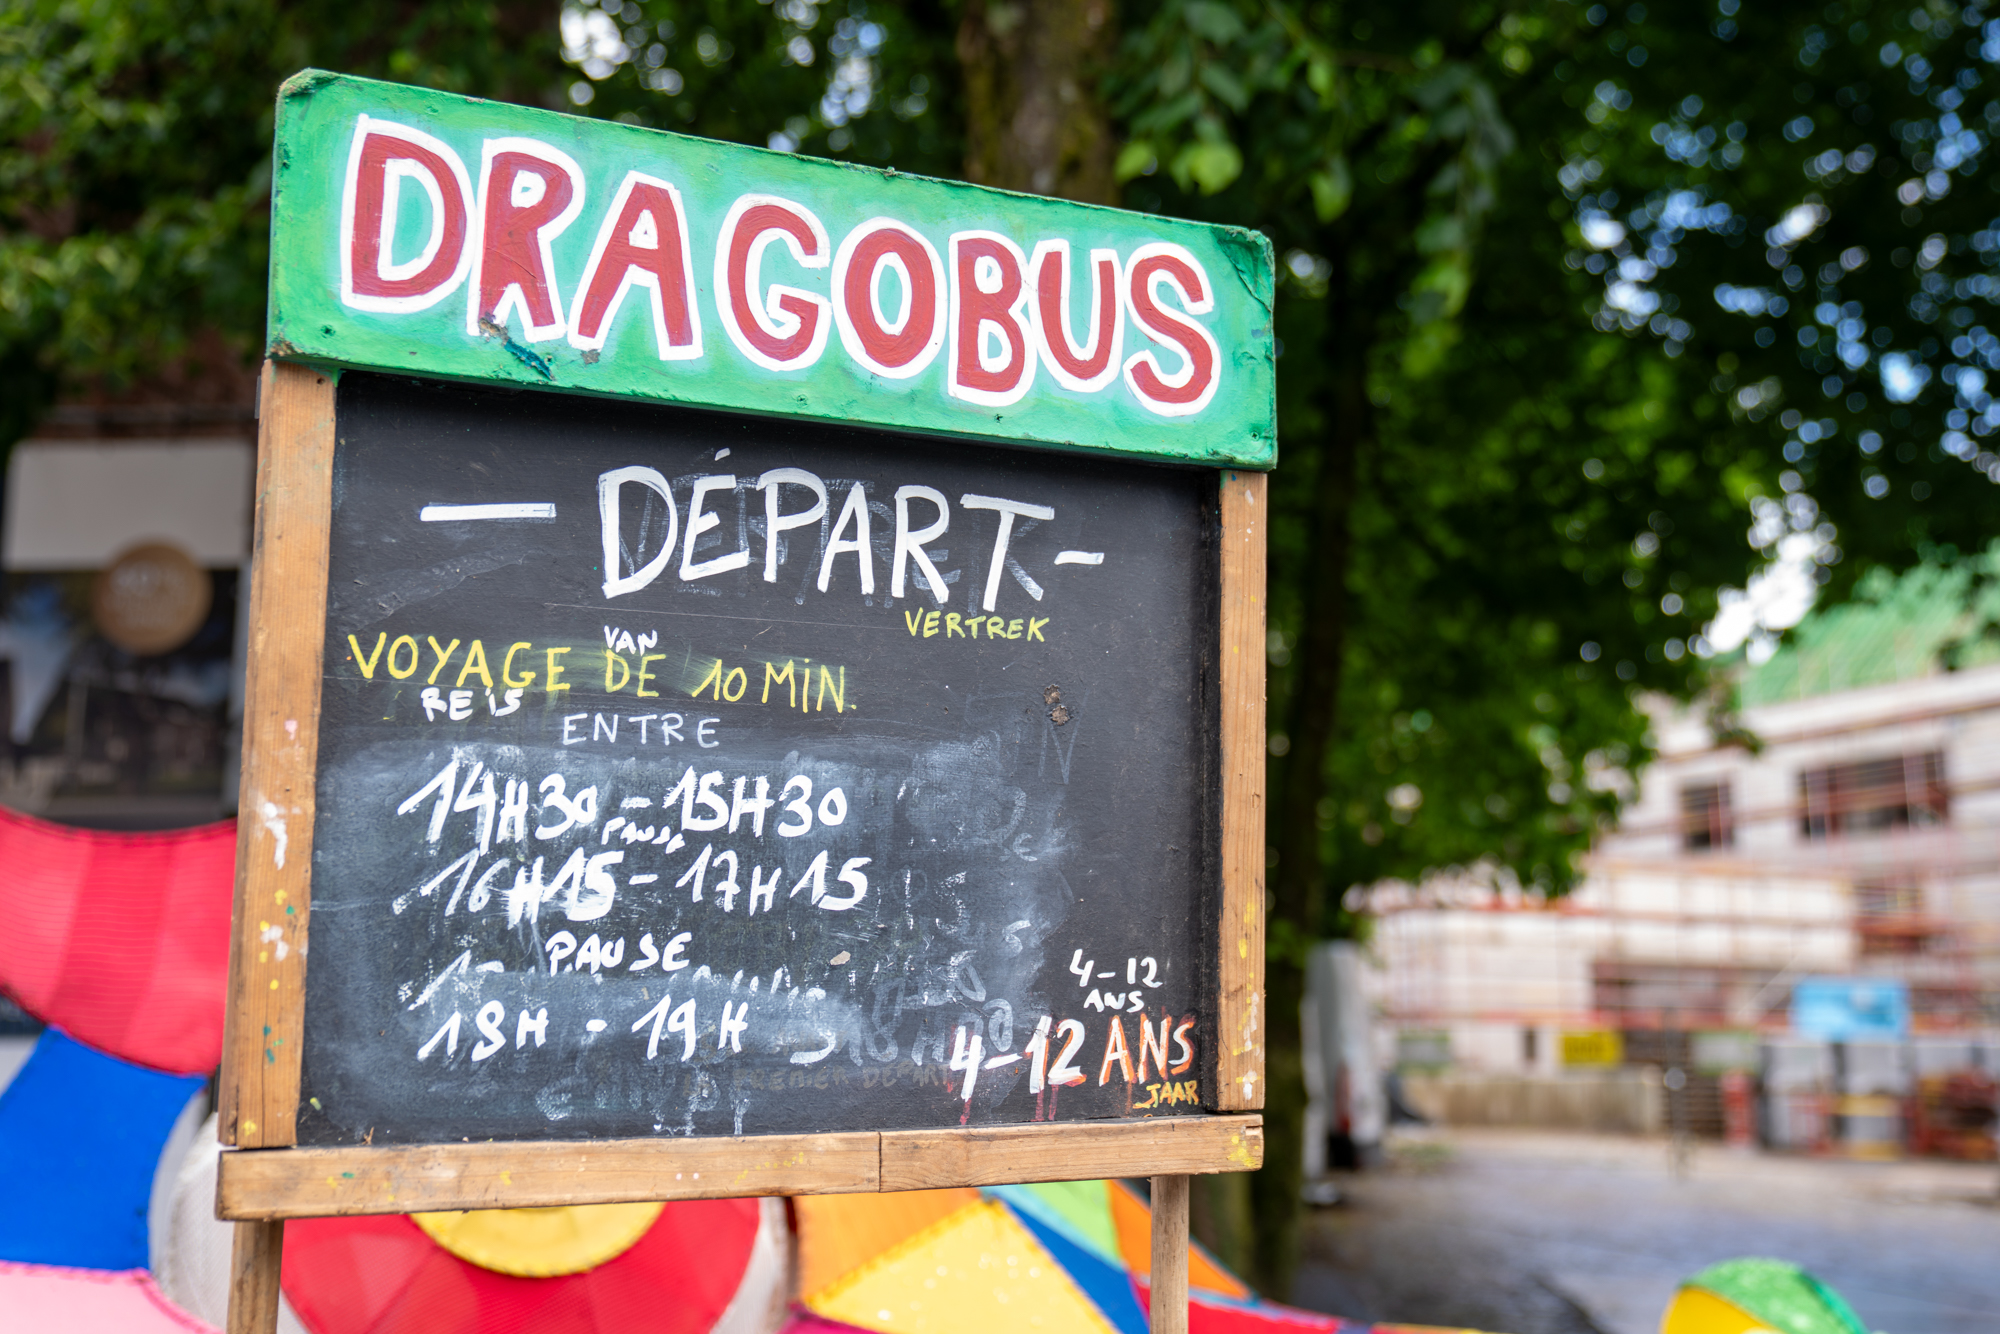 DRAGOBUS
— DÉPART -
VERTREK
VAN
VOYAGE DE 10 MIN.
REIS
ENTRE
14H30 - 15H30
PAUSE
16H15 - 17H15
PAUSE
18H - 19H
4-12
ANS
4-12 ANS
JAAR
PREMIER DÉPART